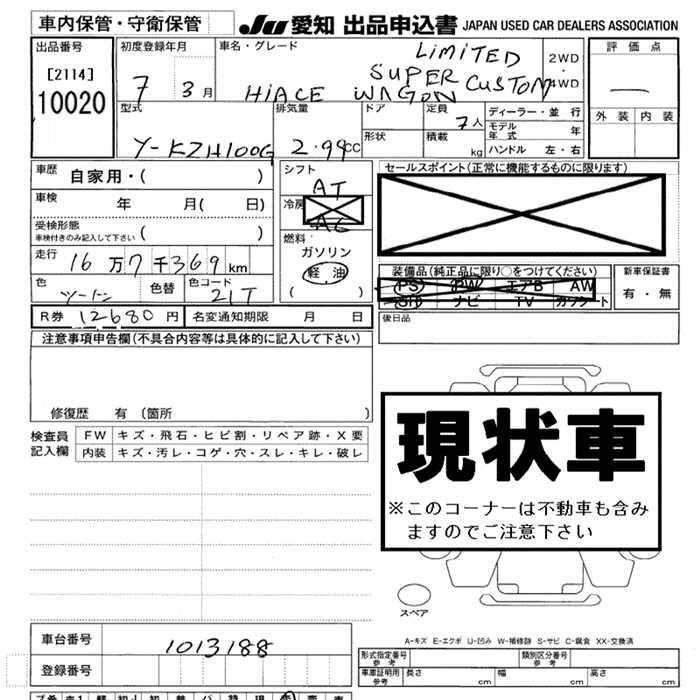 車内保管・守衛保管
JU 愛知 出品申込書 JAPAN USED CAR DEALERS ASSOCIATION
出品番号
[2114]
10020
初度登録年月
7 3月
車名・グレード
LIMITED
SUPER CUSTOM
HIACE WAGON
2WD
・
4WD
評価点
外装 内装
型式
Y-KZH100G
排気量
2.99cc
ドア
形状
定員
7人
積載
kg
ディーラー・並行
モデル年式 年
ハンドル 左・右
車歴
自家用・( )
車検
年 月( 日)
受検形態
車検付きのみ記入して下さい ( )
走行
16万7千369km
色
ツートン
色替
色コード
21T
シフト
AT
冷房
AC
燃料
ガソリン
軽油
( )
セールスポイント(正常に機能するものに限ります)
装備品(純正品に限り○をつけてください)
PS PW エアB AW
SR ナビ TV カワシート
新車保証書
有・無
R券 12680円
名変通知期限 月 日
後日品
注意事項申告欄(不具合内容等は具体的に記入して下さい)
修復歴 有 (箇所 )
検査員
記入欄
FW キズ・飛石・ヒビ割・リペア跡・X要
内装 キズ・汚レ・コゲ・穴・スレ・キレ・破レ
現状車
※このコーナーは不動車も含み
ますのでご注意下さい
スペア
A-キズ E-エクボ U-凹み W-補修跡 S-サビ C-腐食 XX-交換済
車台番号
1013188
登録番号
形式指定番号
参考
類別区分番号
参考
車庫証明用
参考
長さ cm 幅 cm 高さ cm